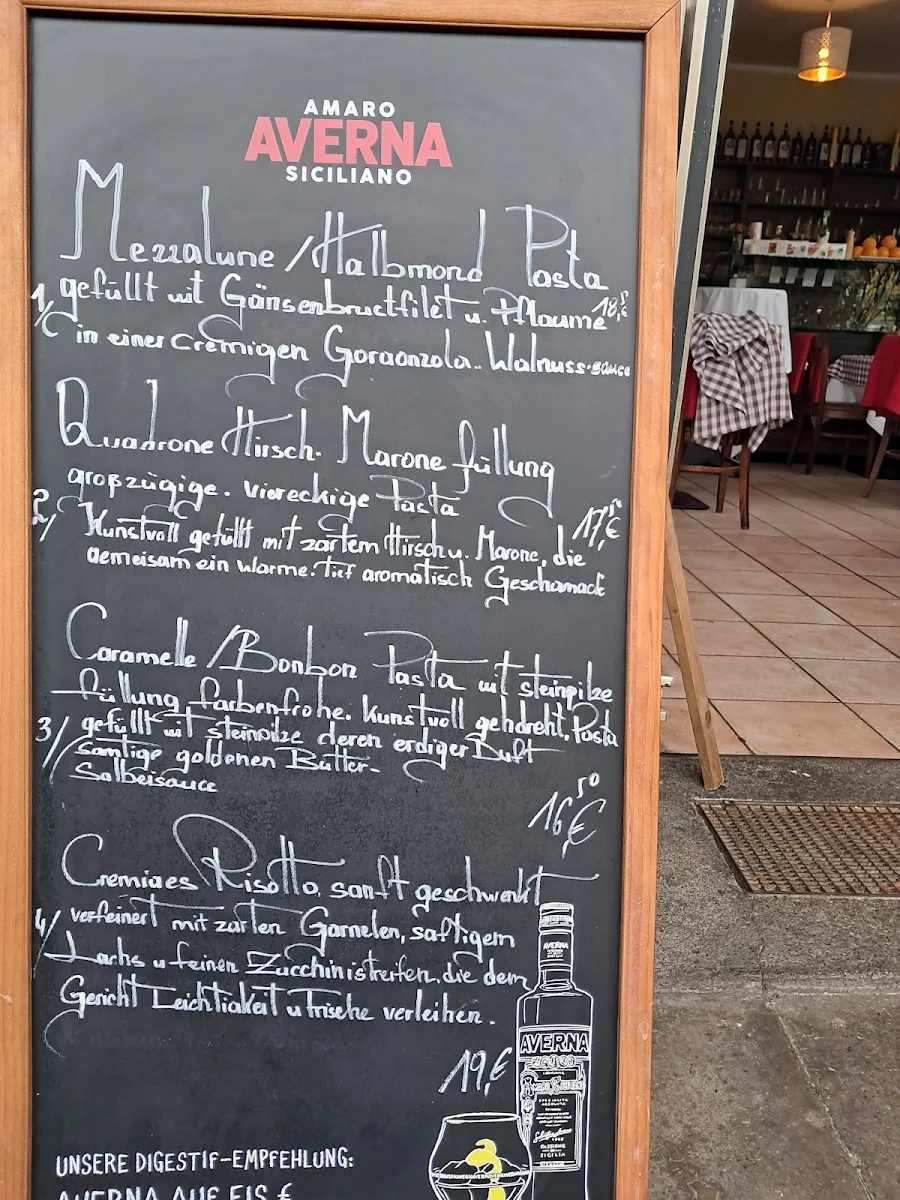 AMARO
AVERNA
SICILIANO
Mezzalune / Halbmond Pasta
1/ gefüllt mit Gänsenbrustfilet u. Pflaume 18,5€
in einer cremigen Gorgonzola.. Walnuss-sauce
Quadrone Hirsch. Marone füllung
großzügige. viereckige Pasta
2/ Kunstvoll gefüllt mit zartem Hirsch u. Marone, die 17,50€
gemeisam ein warme. tief aromatisch Geschamack
Caramelle / Bonbon Pasta mit steinpilze
füllung farbenfrohe. kunstvoll gehdreht. Pasta
3/ gefüllt mit steinpilze deren erdiger Duft
samtige goldenen Butter-
Salbeisauce
16,50€
Cremiges Risotto, sanft geschwenkt
4/ verfeinert mit zarten Garnelen, saftigem
Lachs u feinen Zucchinistreifen, die dem
Gericht Leichtigkeit u frische verleihen.
19,€
AVERNA
AVERNA
SICILIA
UNSERE DIGESTIF-EMPFEHLUNG:
AVERNA AUF EIS €